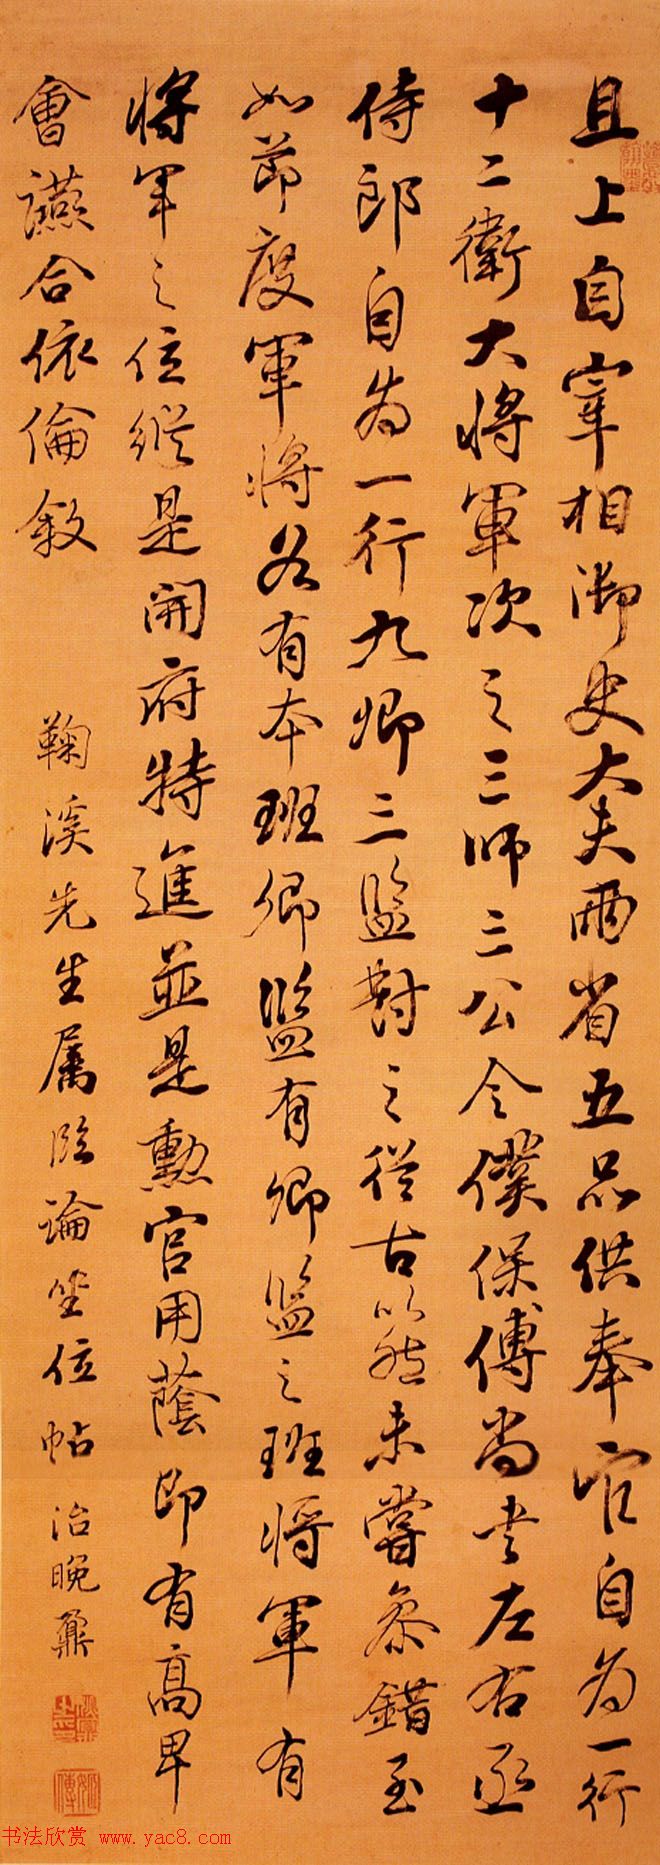 且上自宰相御史大夫兩省五品供奉官自為一行
十二衛大將軍次之三師三公令僕保傅尚書左右丞
侍郎自為一行九卿三監對之從古以然未嘗參錯至
如節度軍將各有本班卿監有卿監之班將軍有
將軍之位縱是開府特進並是勳官用蔭即有高卑
會讌合依倫敘
鞠溪先生屬臨論坐位帖 治晚鼐
书法欣赏 www.yac8.com